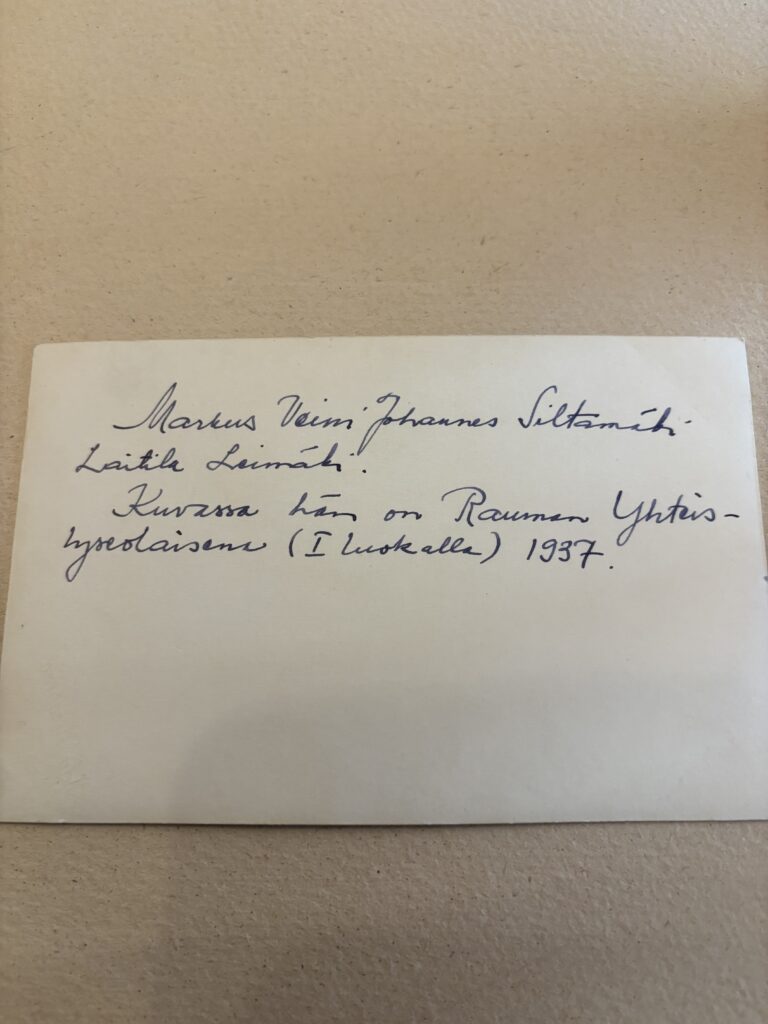 Markus Veini Johannes Siltamäki
Laitila Leimäki.
Kuvassa hän on Rauman Yhteis-
lyseolaisena (I luokalla) 1937.